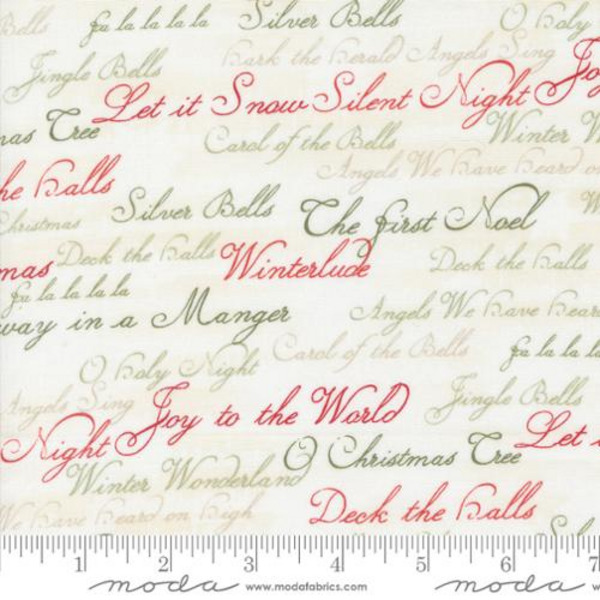 Bells fa la la la la Silver Bells O Holy
Hark the Herald Angels Sing
Jingle Bells Joy
Let it Snow Silent Night
mas Tree Carol of the Bells Winter W
he Halls Angels We Have Heard on
Silver Bells The first Noel
Christmas
mas Deck the Halls Winterlude Deck the Halls
fa la la la la
way in a Manger Angels We Have Heard
Carol of the Bells fa la la la
O Holy Night
Angels Sing Joy to the World Jingle Bells
Night O Christmas Tree Let i
Winter Wonderland
We Have Heard on High Deck the Halls
Silver
1 2 3 4 5 6 7
moda www.modafabrics.com moda